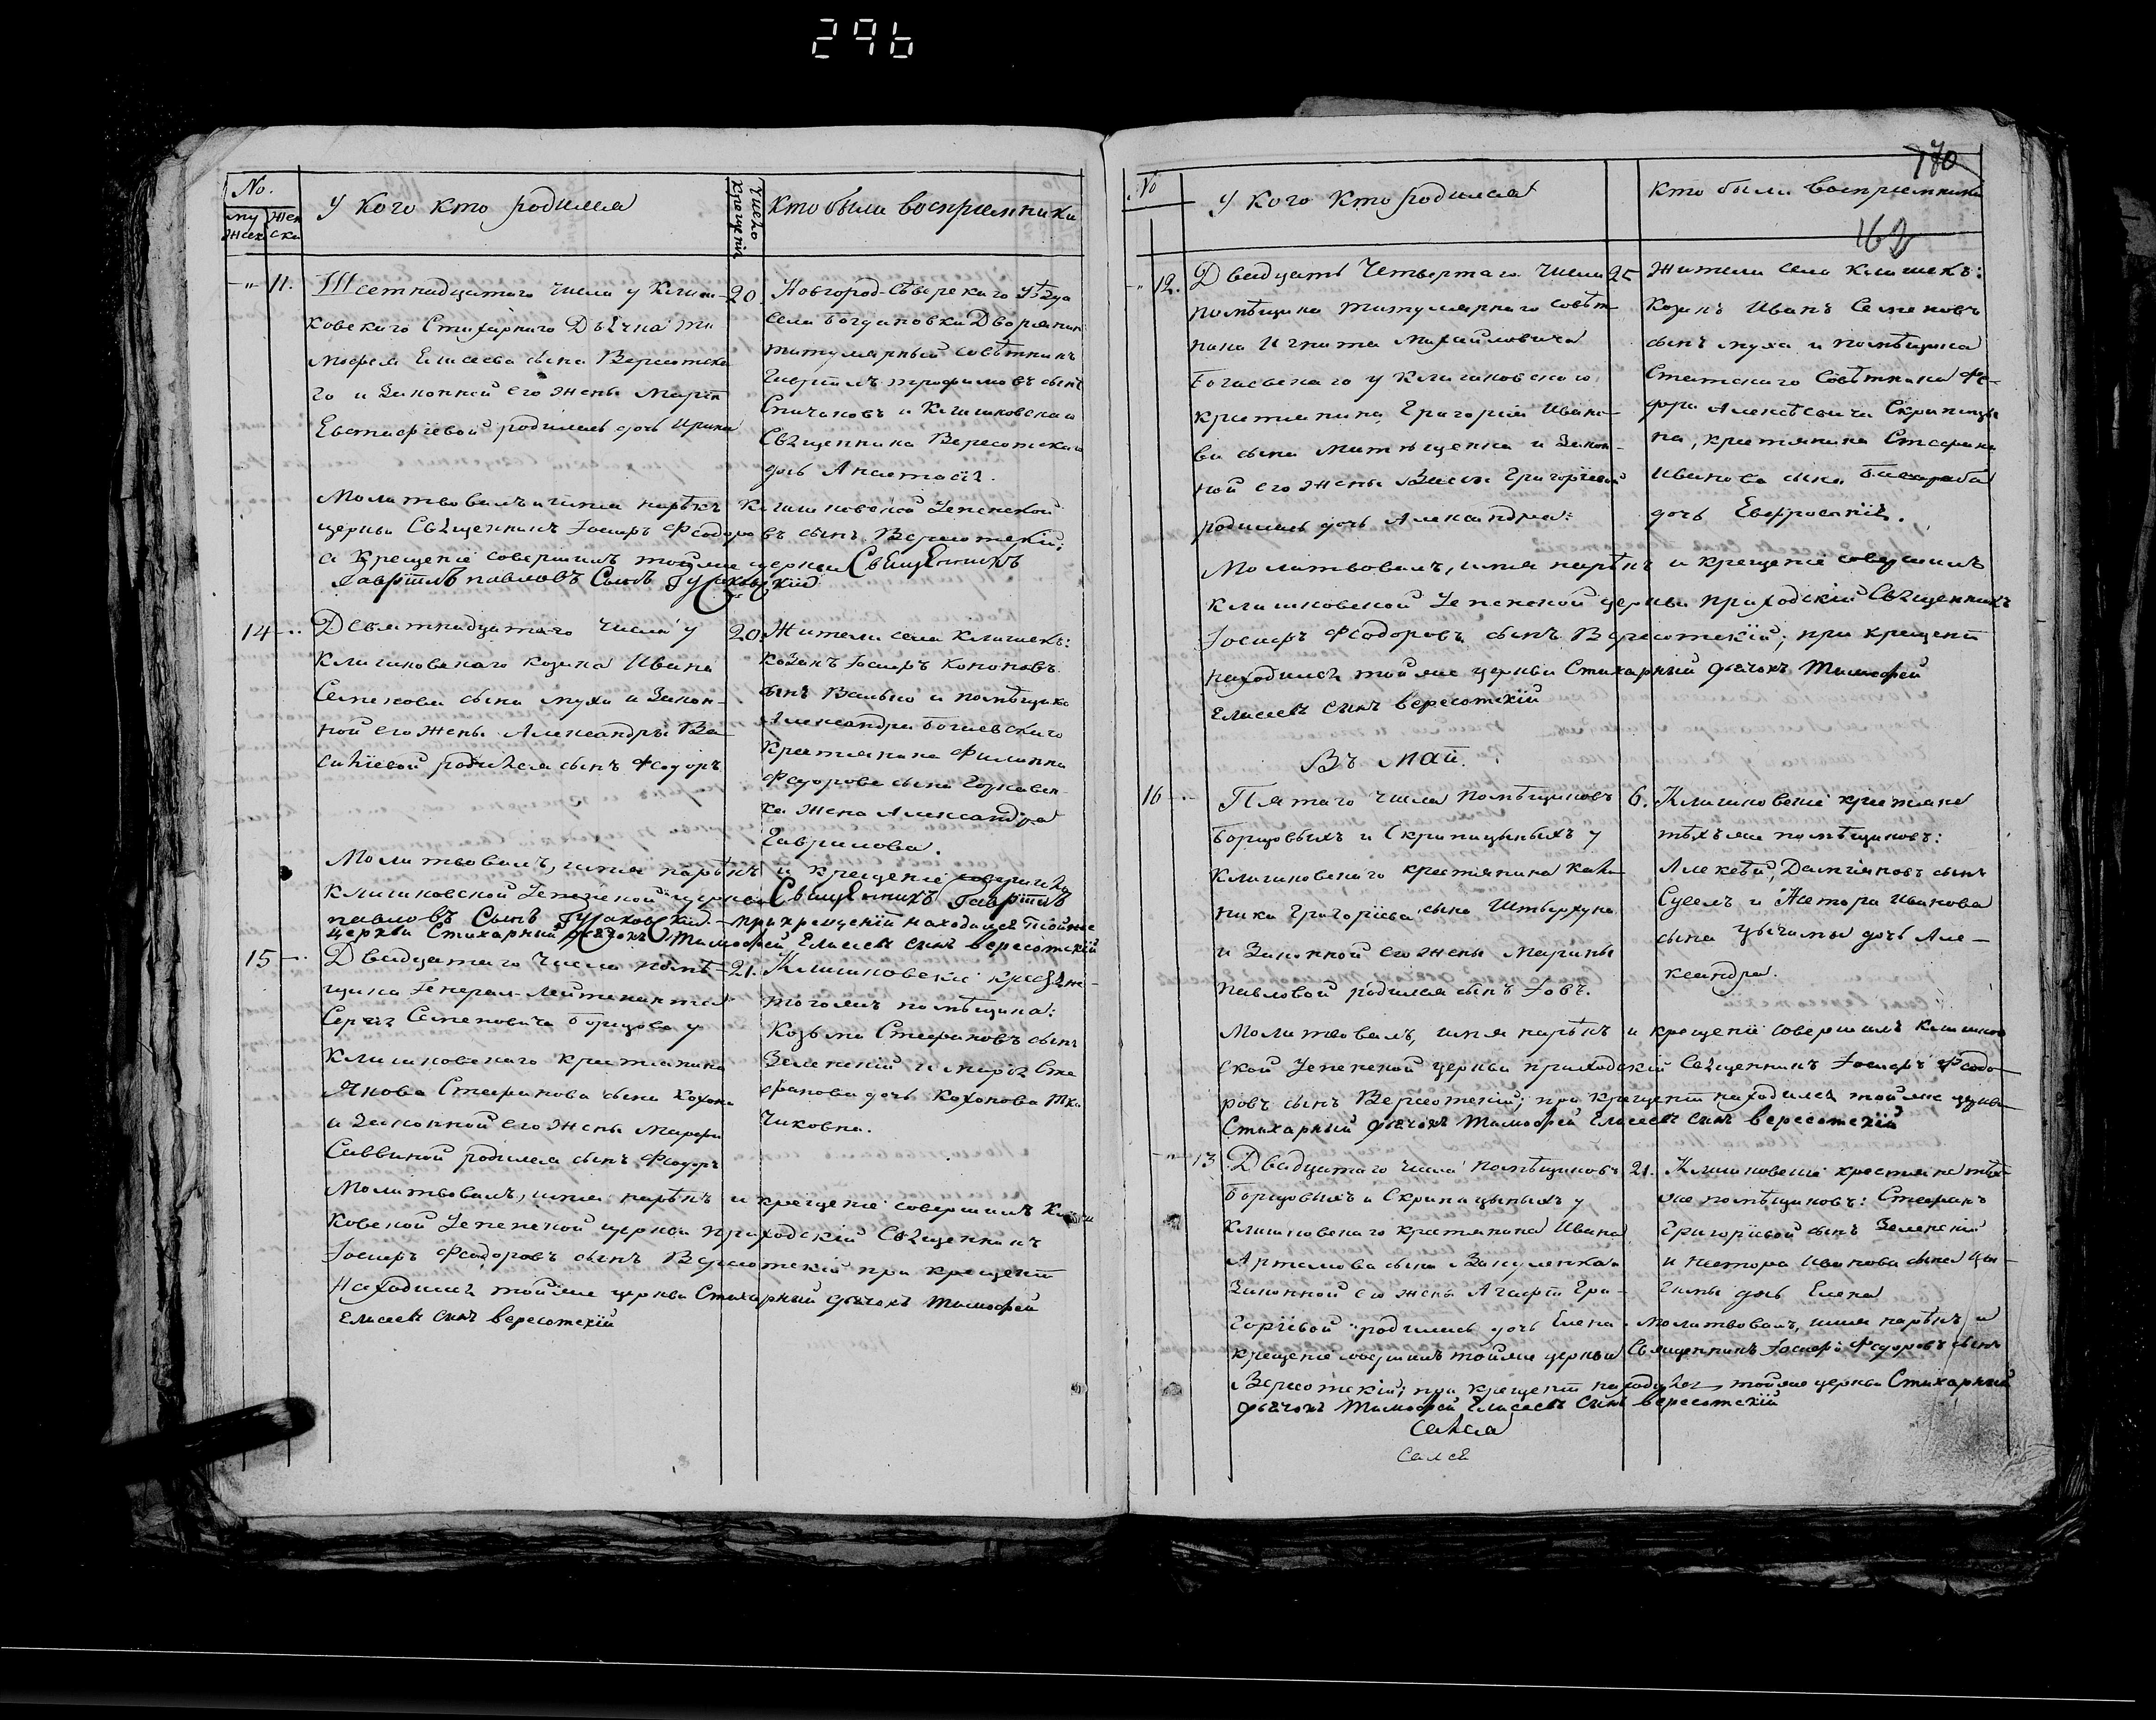 296
No.
муж жен
ска
У кого кто родился
Число Крещенія
кто были воспріемники
-"- 11. Шестнадцатаго числа у Клиш-
ковскаго Стихарнаго Дьячка Ти
мофея Елисеева сына Вересотска
го и Законной его жены Марѳы
Евстафіевой родилась дочь Ирина
20. Новгород-Сѣверскаго Уѣзда
села Богдановки Дворянин
титулярный совѣтникъ
Гавріилъ Трофимовъ сынъ
и Клишковскаго
Священника Вересотскаго
дочь Анастасія.
Молитвовалъ и имя нарѣкъ Клишковской Успенской
церкви Священникъ Іосифъ Феодоровъ сынъ Вересотскій;
а Крещеніе совершилъ тойже церкви СвящЕнникъ
Гавріилъ павловъ Сынъ
14 -"- Девятнадцатаго числа у
Клишковскаго козака Ивана
Семенова сына Мухи и Закон-
ной его жены Александры Ва
силіевой родился сынъ Феодоръ
20. Жители села Клишекъ:
козакъ Іосифъ Кононовъ
сынъ и помѣщика
Александра Богаевскаго
крестянина Филиппа
Федорова сына
ка жена Александра
Гаврилова.
Молитвовалъ, имя нарѣкъ и крещеніе совершилъ
Клишковской Успенской церкви СвящЕнникъ Гавріилъ
павловъ Сынъ - при крещеніи находился тойже
церкви Стихарный дьячокъ Тимофей Елисеевъ сынъ вересотскій
15 -"- Двадцатаго числа помѣ-
щика Генерал-Лейтенанта
Сергія Семеновича Борщова у
Клишковскаго крестянина
Якова Стефанова сына Кохона
и Законной его жены Марфы
Саввиной родился сынъ Феодоръ
21. Клишковскіе крестяне
тогожъ помѣщика:
Козьма Стефановъ сынъ
Зеленскій и Марія Сте
фанова дочь Кохонова Тка
чиковна.
Молитвовалъ, имя нарѣкъ и крещеніе совершилъ Клиш
ковской Успенской церкви приходскій Священникъ
Іосифъ Феодоровъ сынъ Вересотскій при крещеніи
находился тойже церкви Стихарный дьячокъ Тимофей
Елисеевъ сынъ вересотскій
170
No
У кого кто родился
кто были воспріемники
162
-"- 12. Двадцать Четвертаго числа
помѣщика титулярнаго совѣт
ника Игната Михайловича
Богаевскаго у Клишковского
крестянина Григорія Ивано-
ва сына Митющенка и Закон-
ной его жены Васы Григоріевой
родилась дочь Александра:
25 Жители села Клишекъ:
козакъ Иванъ Семеновъ
сынъ муха и помѣщика
Статскаго Совѣтника Фе-
дора Алексѣевича Скрипицы
на, крестянина Стефана
Иванова сына
дочь Евфросинія.
Молитвовалъ, имя нарѣкъ и крещеніе совершилъ
Клишковской Успенской церкви приходскій Священникъ
Іосифъ Феодоровъ сынъ Вересотскій; при крещеніи
находился тойже церкви Стихарный дьячокъ Тимофей
Елисеевъ сынъ вересотскій
Въ маѣ.
16 -"- Пятаго числа помѣщиковъ
Борщовыхъ и Скрипицыныхъ у
Клишковскаго крестянина Кали
ника Григоріева сына
и Законной его жены Марины
Павловой родился сынъ Іовъ.
6. Клишковскіе крестяне
тѣхъже помѣщиковъ:
Алексѣй Даміановъ сынъ
и Нестора Иванова
сына Цыганы дочь Але-
ксандра.
Молитвовалъ, имя нарѣкъ и крещеніе совершилъ Клишков
ской Успенской церкви приходскій Священникъ Іосифъ Феодо-
ровъ сынъ Вересотскій; при крещеніи находился тойже церкви
Стихарный дьячокъ Тимофей Елисеевъ сынъ вересотскій
-"- 13 Двадцатаго числа помѣщиковъ
Борщовыхъ и Скрипицыныхъ у
Клишковскаго крестянина Ивана
Артемова сына Вакуленка и
Законной его жены Агафіи Гри-
горіевой родилась дочь Елена
21. Клишковскіе крестяне тѣхъ
же помѣщиковъ: Стефанъ
Григоріевой сынъ Зеленскій
и Нестора Иванова сына Цы-
ганы дочь Елена
молитвовалъ, имя нарѣкъ и
крещеніе совершилъ тойже церкви Священникъ Іосифъ Федоровъ сынъ
Вересотскій; при крещеніи находился тойже церкви Стихарный
дьячокъ Тимофей Елисеевъ сынъ вересотскій